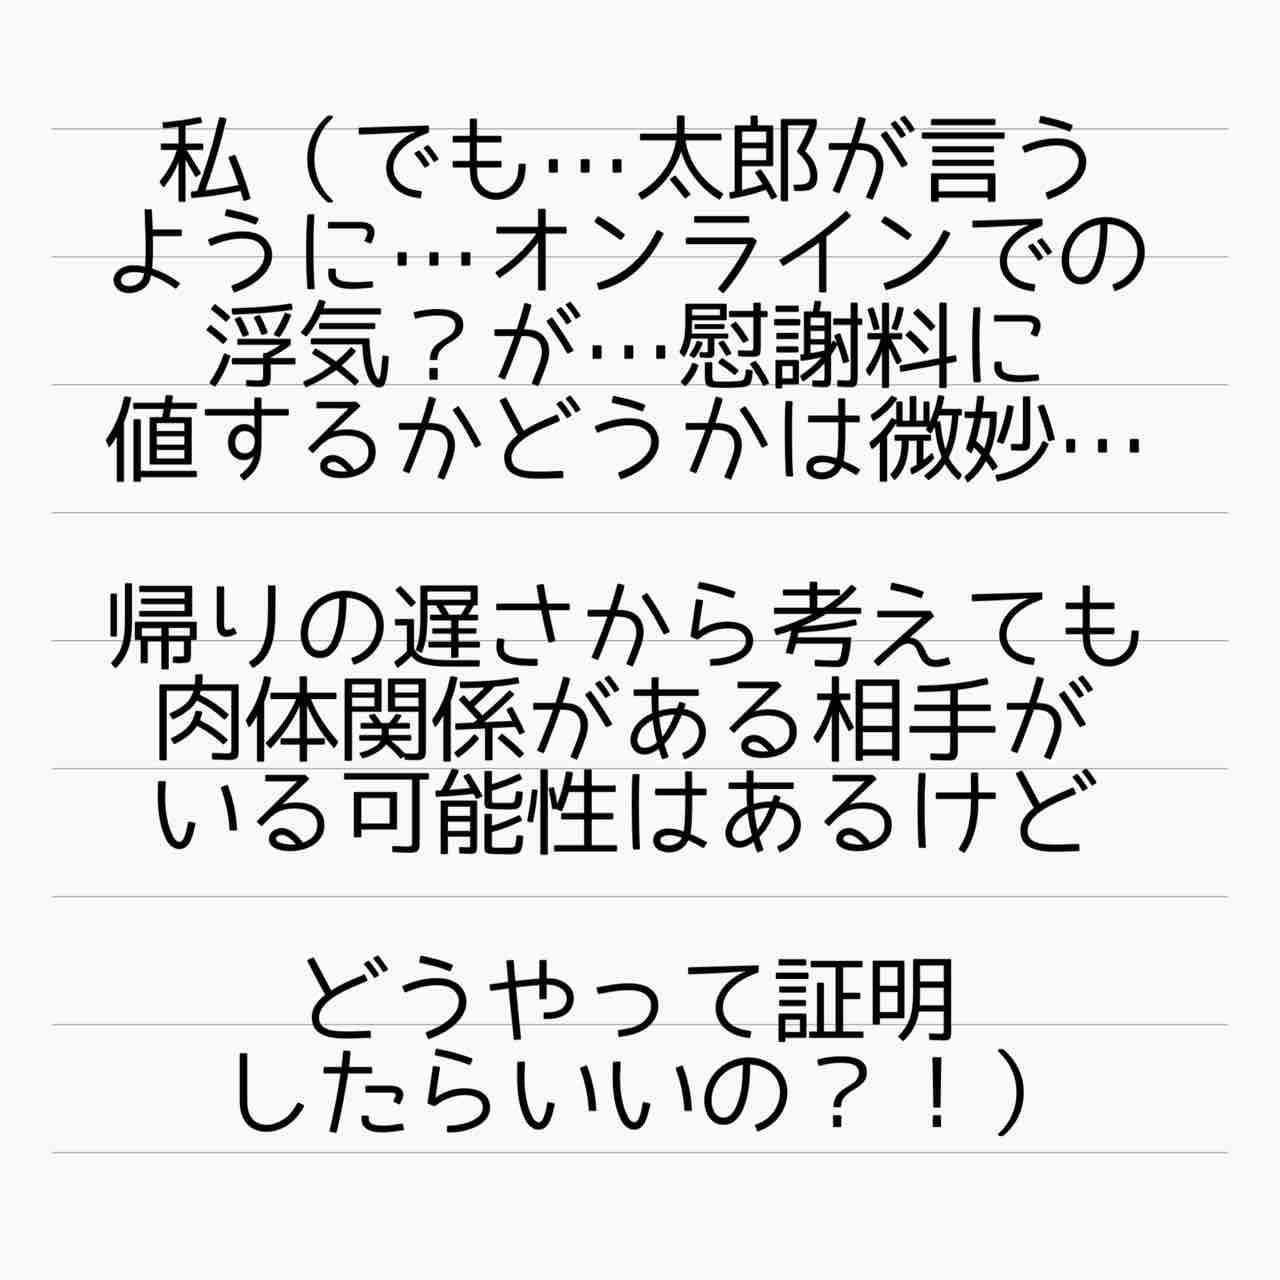 私（でも…太郎が言う
ように…オンラインでの
浮気？が…慰謝料に
値するかどうかは微妙…
帰りの遅さから考えても
肉体関係がある相手が
いる可能性はあるけど
どうやって証明
したらいいの？！）